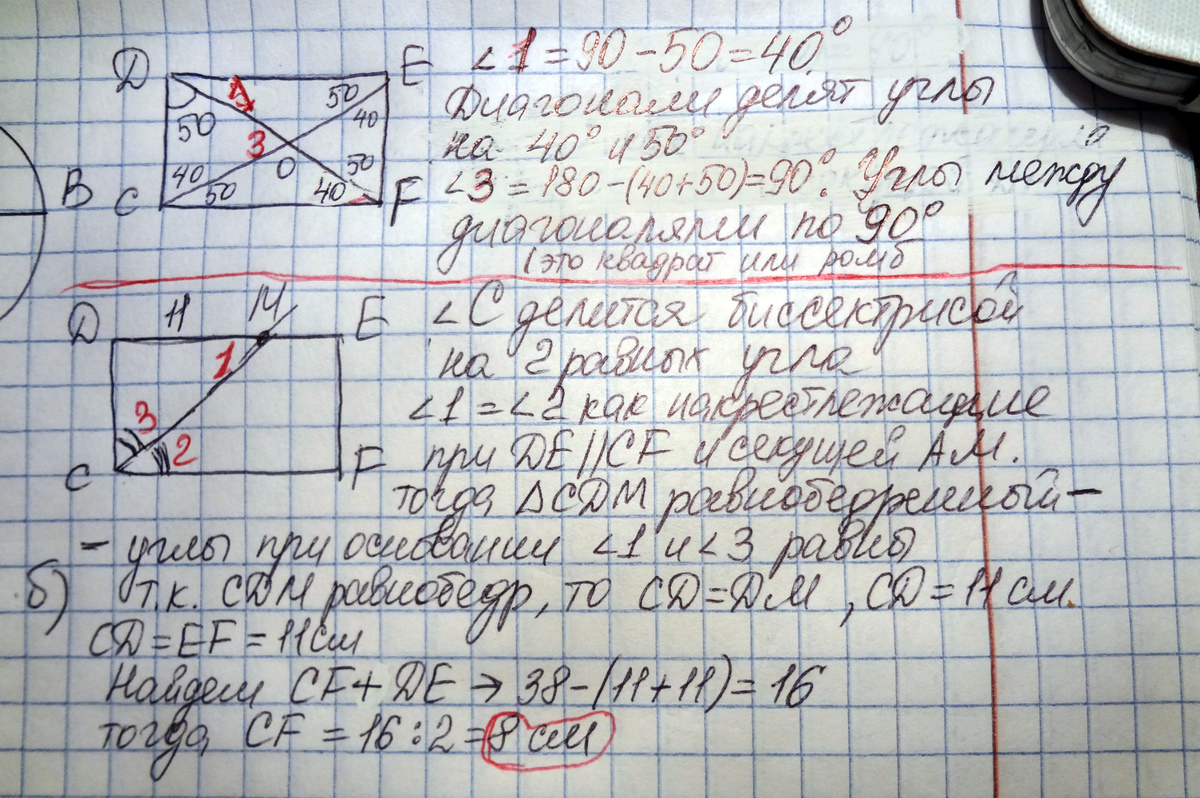 D E
1 50
50 40
3
O
40 50 40 50
B C F
∠1 = 90 - 50 = 40°
Диагонали делят углы
на 40° и 50°
∠3 = 180 - (40+50) = 90°. Углы между
диагоналями по 90°
(это квадрат или ромб
D 11 M E
1
3
2
C F
∠C делится биссектрисой
на 2 равных угла
∠1 = ∠2 как накрестлежащие
при DE||CF и секущей АМ.
тогда △CDM равнобедренный -
- углы при основании ∠1 и ∠3 равны
б) т.к. CDM равнобедр, то CD = DM, CD = 11 см.
CD = EF = 11 см
Найдем CF + DE → 38 - (11+11) = 16
тогда CF = 16 : 2 = 8 см